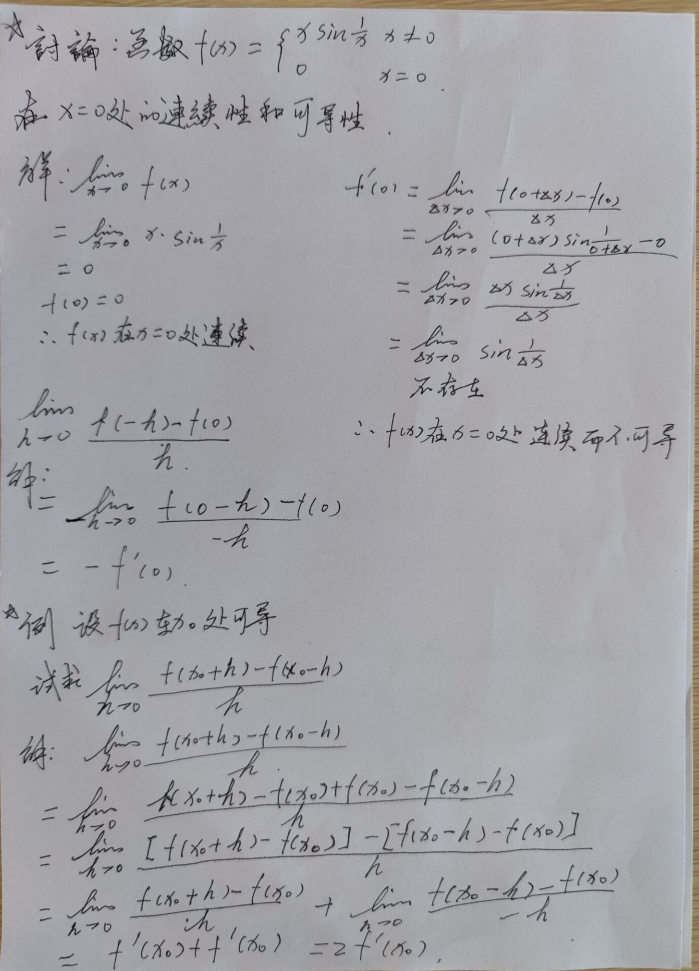 *討論:函数 f(x) = { x sin 1/x x≠0
0 x=0.
在 x=0处的連續性和可导性.
解: lim x→0 f(x)
= lim x→0 x·sin 1/x
= 0
f(0)=0
∴ f(x)在x=0处連续
f'(0) = lim Δx→0 (f(0+Δx)-f(0))/Δx
= lim Δx→0 ((0+Δx) sin 1/(0+Δx) - 0)/Δx
= lim Δx→0 (Δx sin 1/Δx)/Δx
= lim Δx→0 sin 1/Δx
不存在
∴ f(x)在x=0处 连续而不可导
lim h→0 (f(-h)-f(0))/h.
解:
= - lim -h→0 (f(0-h)-f(0))/-h
= -f'(0).
*例 设f(x)在x₀处可导
试求 lim h→0 (f(x₀+h)-f(x₀-h))/h
解: lim h→0 (f(x₀+h)-f(x₀-h))/h
= lim h→0 (f(x₀+h)-f(x₀)+f(x₀)-f(x₀-h))/h
= lim h→0 ([f(x₀+h)-f(x₀)]-[f(x₀-h)-f(x₀)])/h
= lim h→0 (f(x₀+h)-f(x₀))/h + lim h→0 (f(x₀-h)-f(x₀))/-h
= f'(x₀)+f'(x₀) =2f'(x₀).